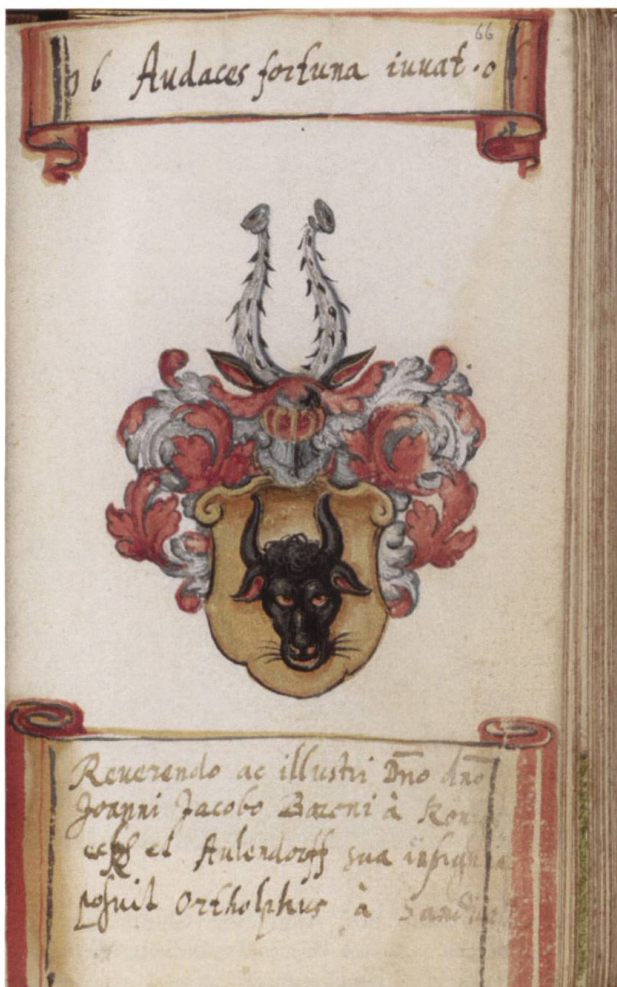 66
06 Audaces fortuna iuuat .0
Reuerendo ac illustri Dn̄o dn̄o
Joanni Jacobo Baroni à
et Aulendorff sua insignia
posuit Ortholphus à